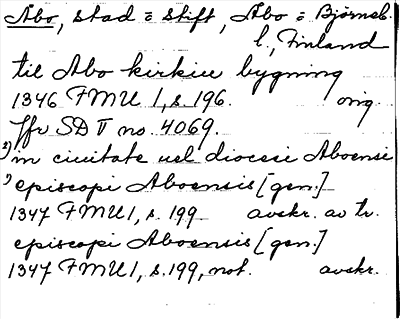 Abo, stad = stift, Abo = Björneb.
l., Finland
til Abo kirkiu bygning
1346 FMU 1, s. 196. orig.
Jfr SD V no. 4069.
2) in ciuitate uel diocesi Aboensi
1) episcopi Aboensis [gen.]
1347 FMU 1, s. 199 avskr. av tr.
episcopi Aboensis [gen.]
1347 FMU 1, s. 199, not. avskr.